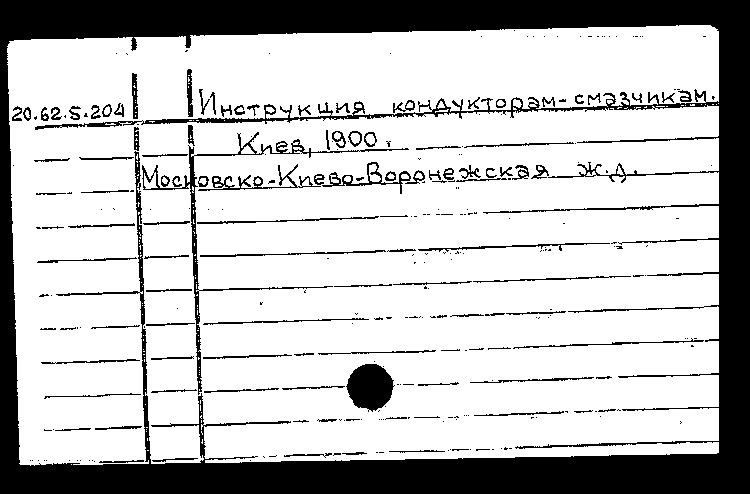 20.62.5.204 Инструкция кондукторам-смазчикам.
Киев, 1900.
Московско-Киево-Воронежская ж.д.